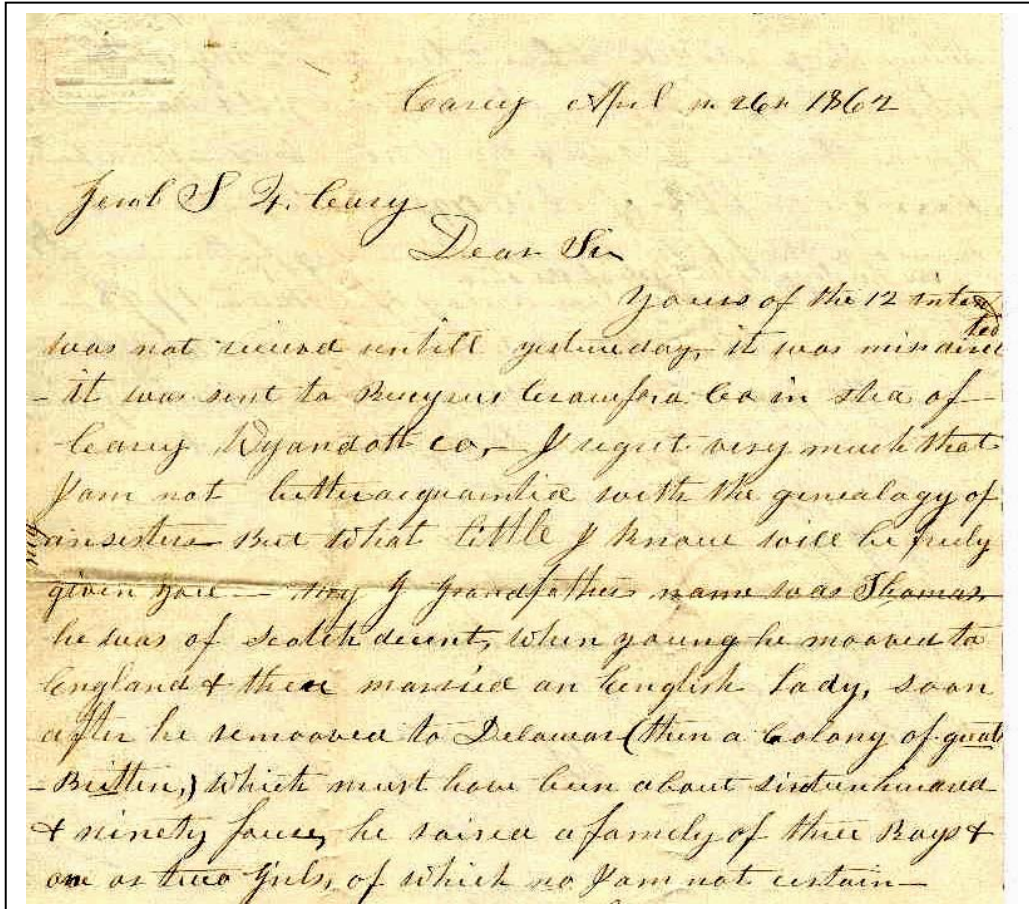 Carey April 26th 1862
Jerob S F. Carey
Dear Sir
Yours of the 12
was not recieved untill yesturday, it was misdirec
ted
- it was sent to Bucyrus Crawford Co in stea of -
Carey Wyandott co, - I regret very much that
I am not better acquainted with the genealogy of
my
ansisters - But what little I know will be freely
given you - My G Grandfathers name was Thomas
he was of Scotch decent, when young he mooved to
England & there married an English Lady, soon
after he remooved to Delawar (then a Colony of great
- Brittin,) which must have been about sixteen hundred
& ninety four, he raised a famely of three Boys &
one or two Girls, of which no I am not certain -